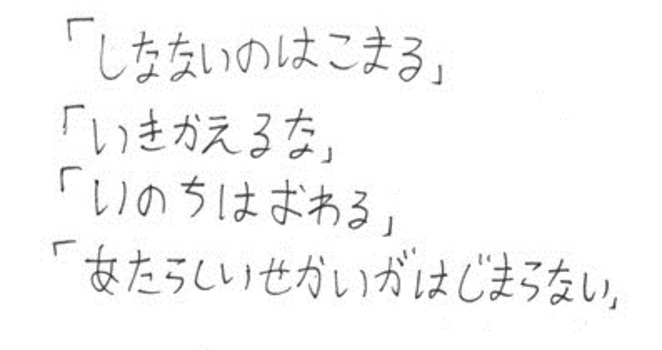 「しなないのはこまる」
「いきかえるな」
「いのちはおわる」
「あたらしいせかいがはじまらない」